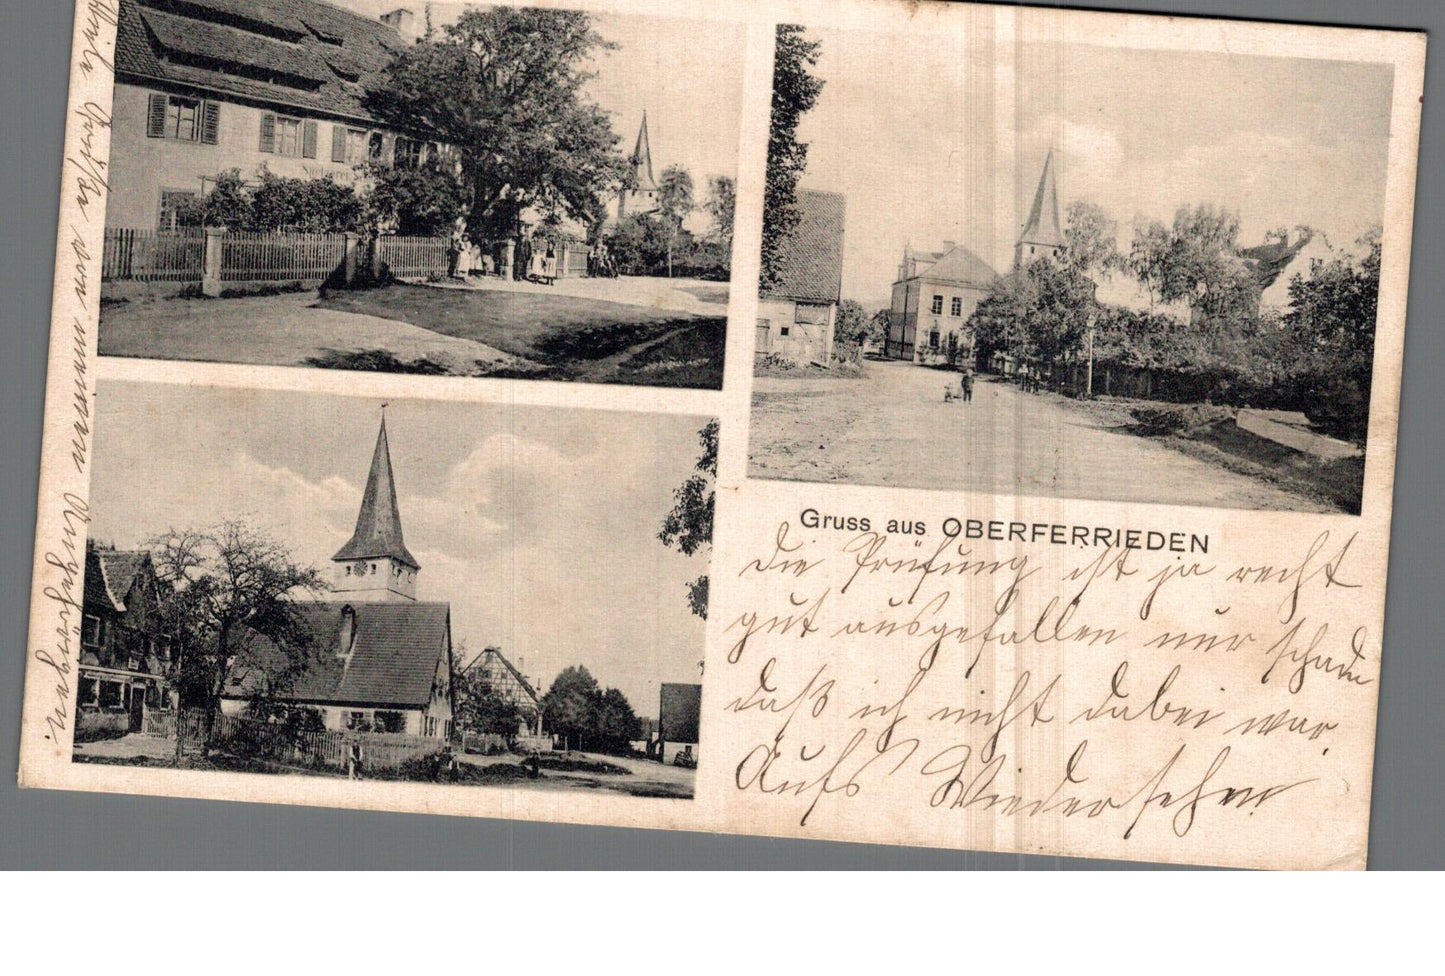 Gruss aus OBERFERRIEDEN
Die Prüfung ist ja recht
gut ausgefallen nur schade
daß ich nicht dabei war.
Aufs Wiedersehen
Grüße von meinen Angehörigen.